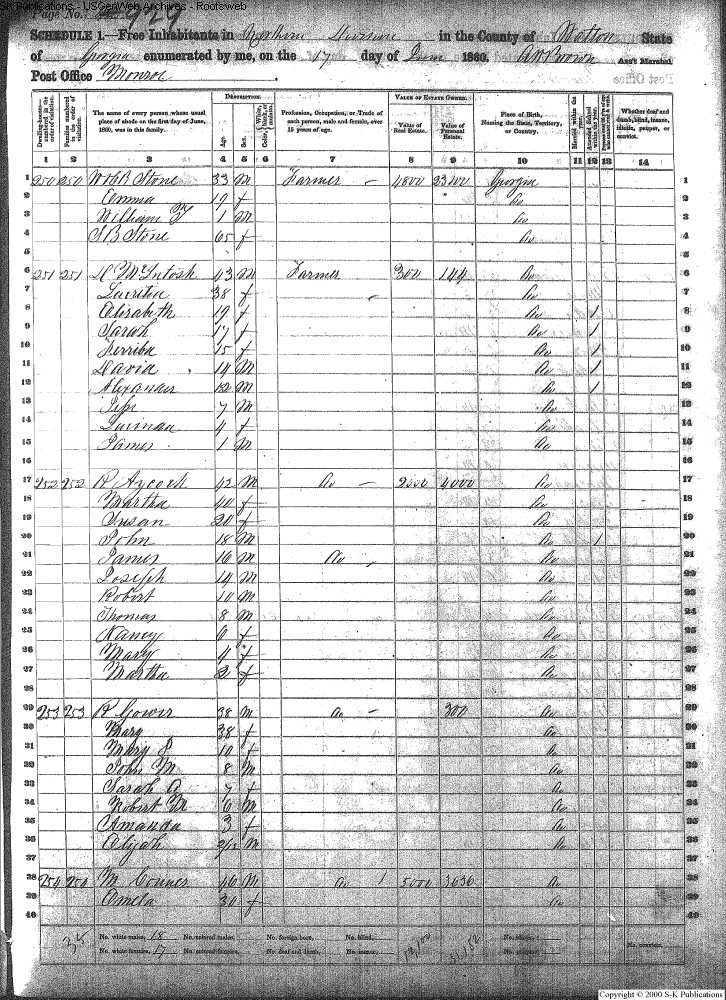 S-K Publications - USGenWeb Archives - Rootsweb
Page No. 929
SCHEDULE 1.—Free Inhabitants in Northern Division in the County of Walton State
of Georgia enumerated by me, on the 17 day of June 1860. Brown Ass't Marshal.
Post Office Monroe
Dwelling-houses—numbered in the order of visitation. Families numbered in the order of visitation. The name of every person whose usual place of abode on the first day of June, 1860, was in this family. DESCRIPTION. Age. Sex. Color, White, black, or mulatto. Profession, Occupation, or Trade of each person, male and female, over 15 years of age. VALUE OF ESTATE OWNED. Value of Real Estate. Value of Personal Estate. Place of Birth, Naming the State, Territory, or Country. Married within the year. Attended School within the year. Whether deaf and dumb, blind, insane, idiotic, pauper, or convict.
1 2 3 4 5 6 7 8 9 10 11 12 13 14
1 250 250 Stone 33 M Farmer 4800 23100 Georgia 1
2 Emma 19 f Do 2
3 William T 1 M Do 3
4 S B Stone 65 f Do 4
5 5
6 251 251 D McIntosh 43 M Farmer 300 144 Do 6
7 Lucritia 38 f Do 7
8 Elizabeth 19 f Do 1 8
9 Sarah 17 f Do 1 9
10 15 f Do 1 10
11 David 14 M Do 1 11
12 Alexander 12 M Do 1 12
13 7 M Do 13
14 4 f Do 14
15 James 1 M Do 15
16 16
17 252 252 R Aycock 42 M Do 2000 4000 Do 17
18 Martha 40 f Do 18
19 Susan 20 f Do 19
20 John 18 M Do 1 20
21 James 16 M Do Do 21
22 Joseph 14 M Do 22
23 Robert 10 M Do 23
24 Thomas 8 M Do 24
25 Nancy 6 f Do 25
26 Mary 4 f Do 26
27 Martha 2 f Do 27
28 28
29 253 253 R Gower 38 M Do 300 Do 29
30 Mary 38 f Do 30
31 Mary 10 f Do 31
32 John M 8 M Do 32
33 Sarah A 7 f Do 33
34 Robert M 6 M Do 34
35 Amanda 3 f Do 35
36 Elijah 2/12 M Do 36
37 37
38 254 254 M Conner 46 M Do 1 5000 3636 Do 38
39 Omela 30 f Do 39
40 40
35 No. white males, 18 No. colored males, No. foreign born, No. blind,
No. white females, 17 No. colored females, No. deaf and dumb, No. insane, No. convicts,
Copyright © 2000 S-K Publications